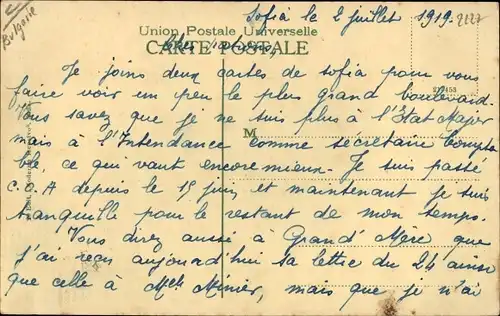 Bulgarie
Sofia le 2 juillet 1919.
Union Postale Universelle
CARTE POSTALE
Je joins deux cartes de sofia pour vous
faire voir un peu le plus grand boulevard
Vous savez que je ne suis plus à l'Etat Major
M
mais à l'Intendance comme secrétaire compta
ble, ce qui vaut encore mieux. Je suis passé
C.O.A depuis le 15 juin et maintenant je suis
tranquille pour le restant de mon temps.
Vous direz aussi à Grand' Mère que
j'ai reçu aujourd'hui sa lettre du 24 ainsi
que celle à Melle, mais que je n'ai